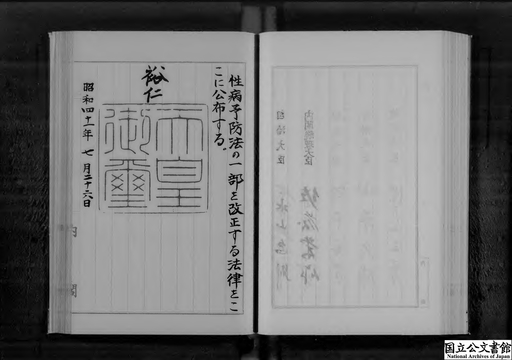 性病予防法の一部を改正する法律をこ
こに公布する
裕仁
天皇
御璽
昭和四十一年七月二十六日
内閣総理大臣
国立公文書館
National Archives of Japan